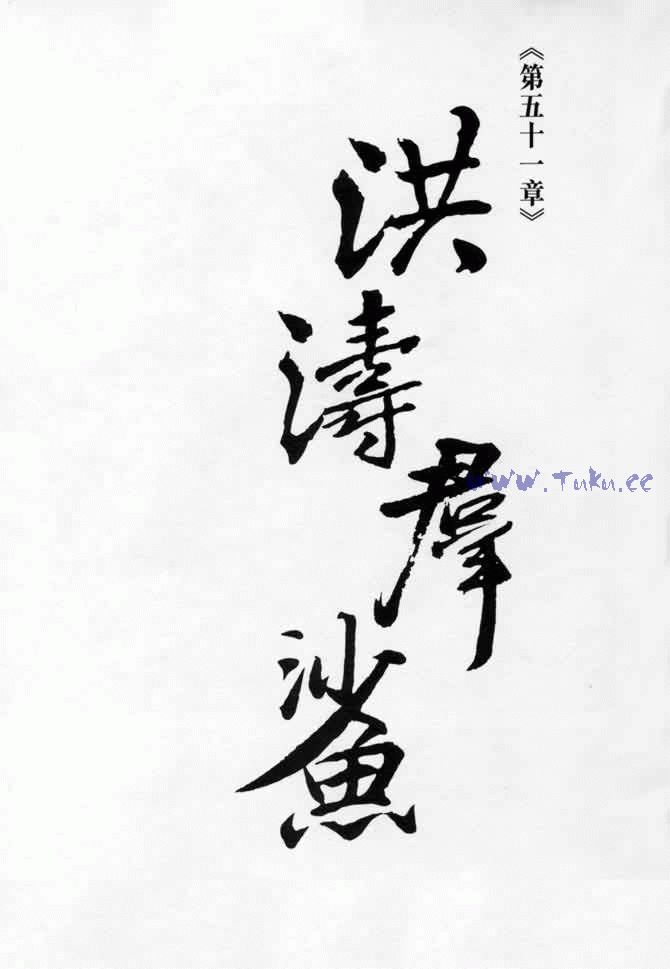 《第五十一章》
洪濤羣鯊
www.Tuku.cc